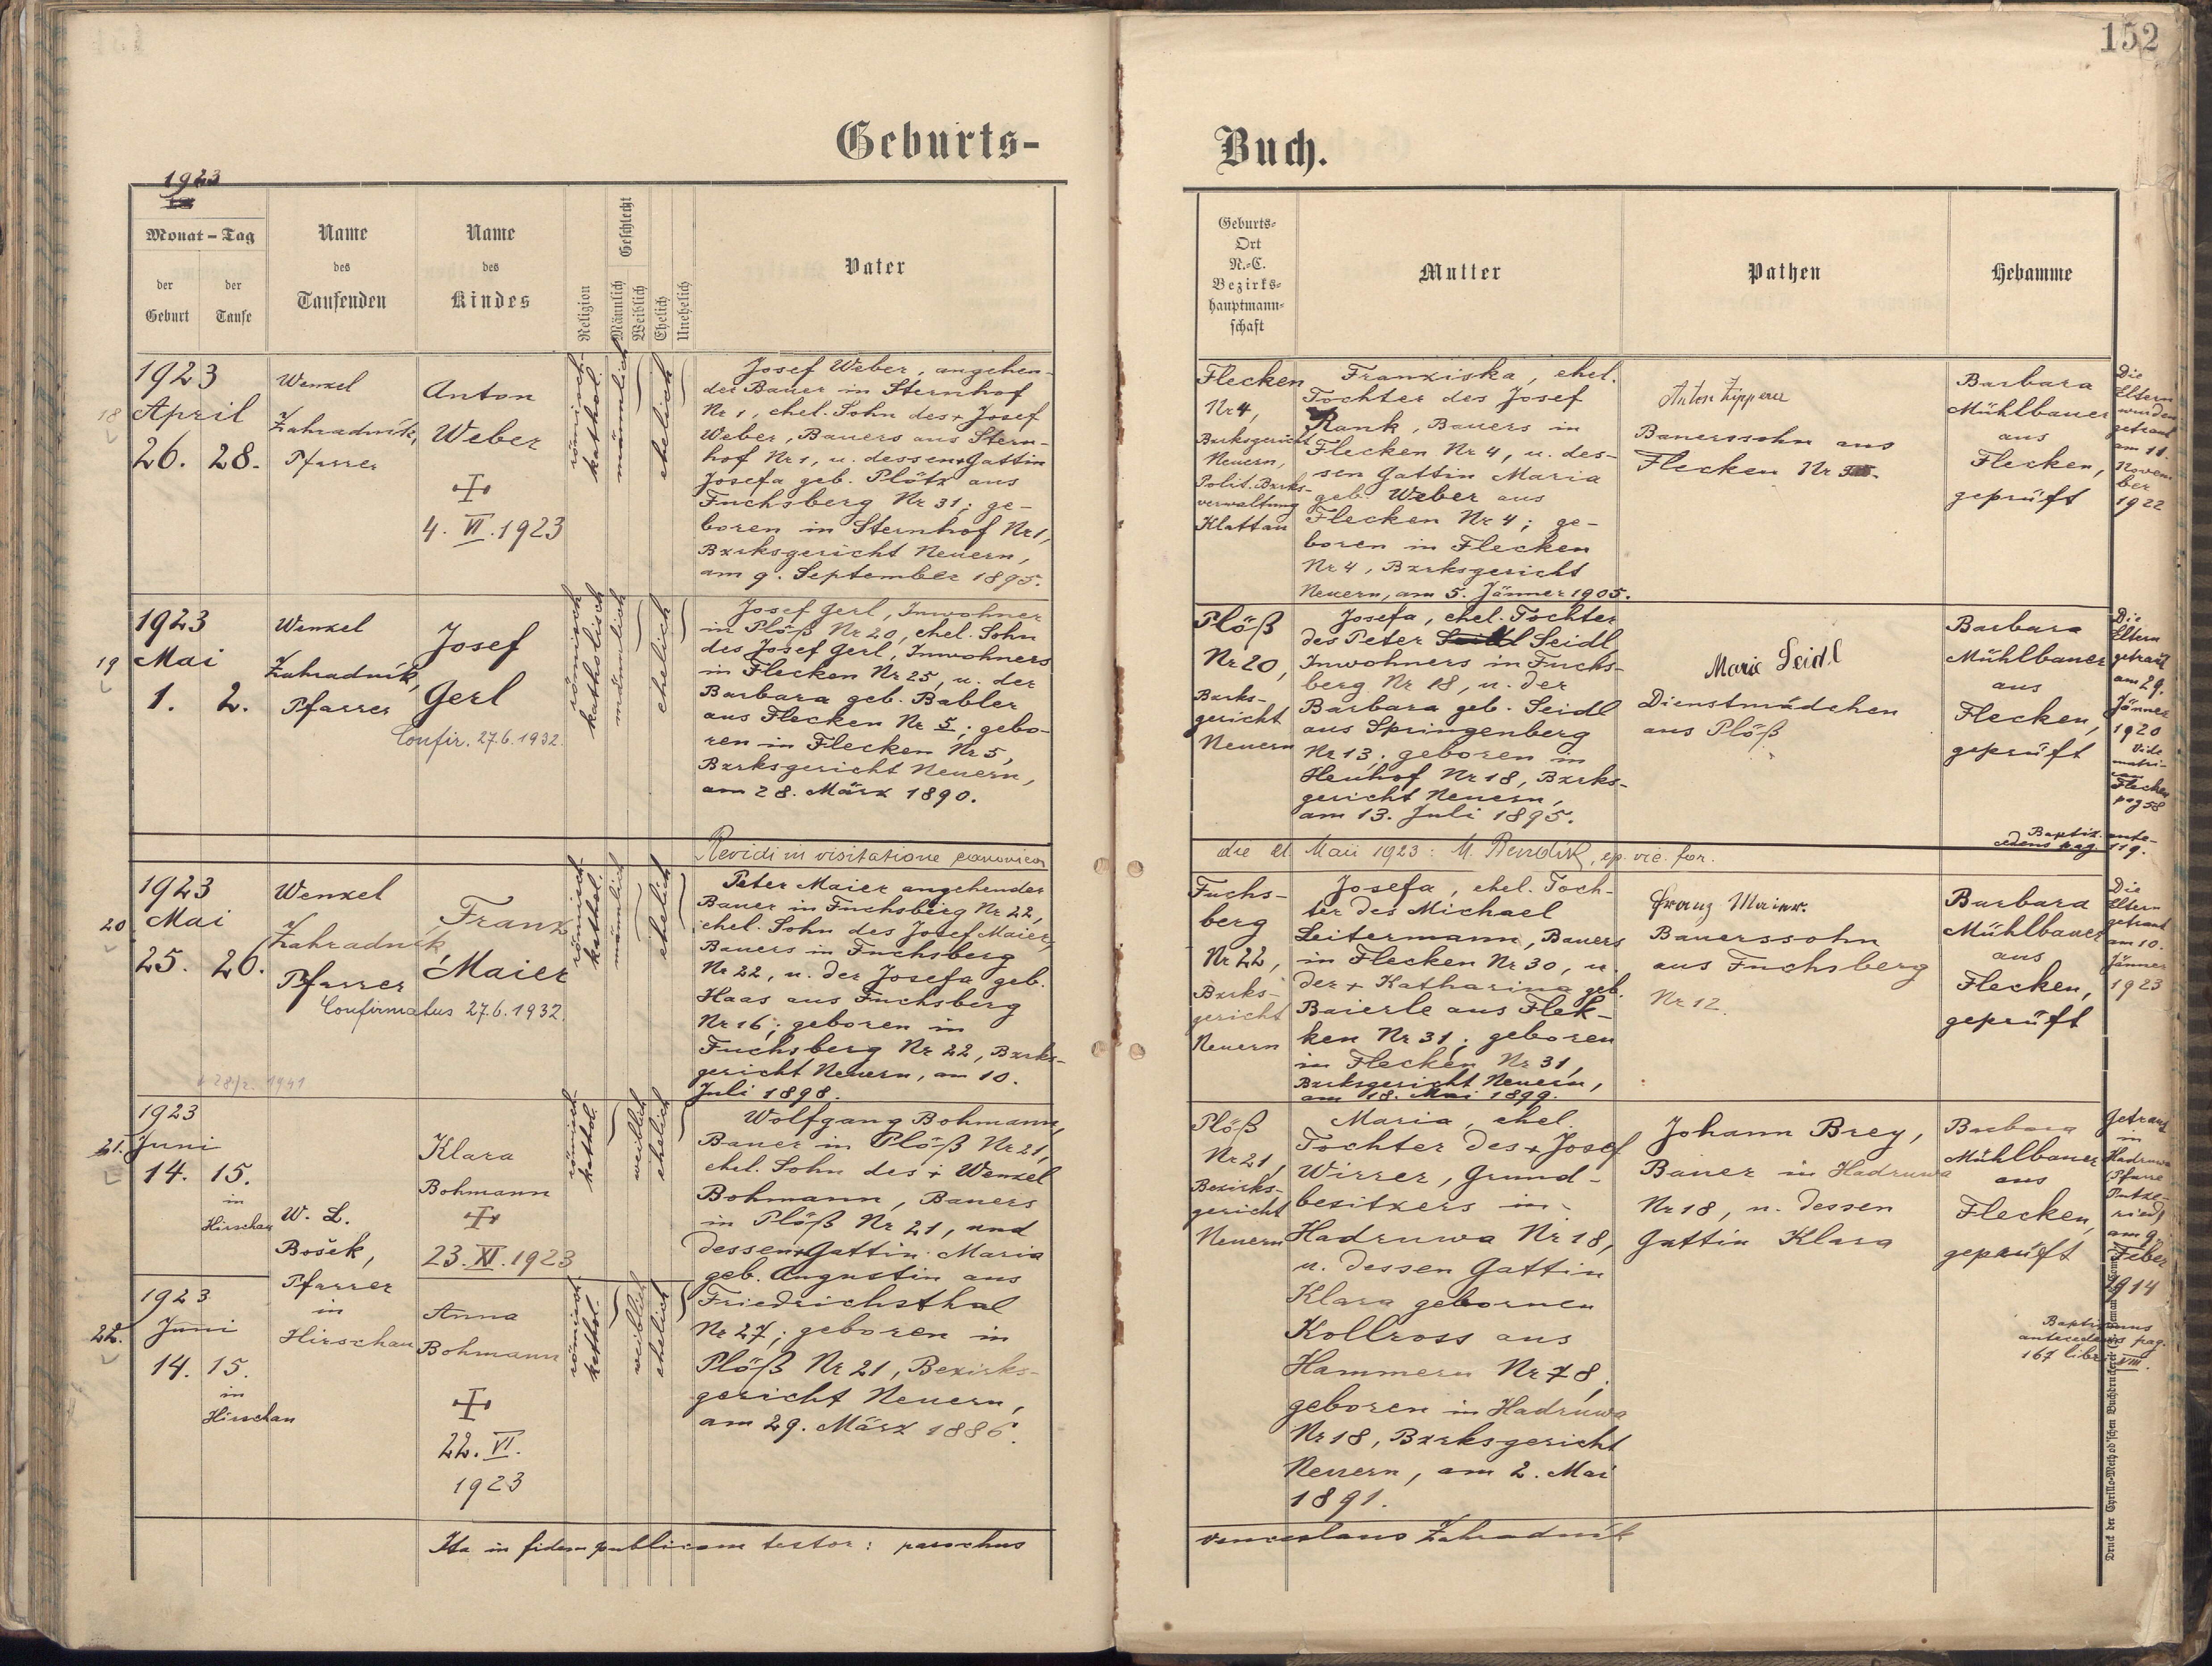 152
Geburts-
Buch.
1923
Monat - Tag
der
Geburt
der
Taufe
Name
des
Taufenden
Name
des
Kindes
Religion
Geschlecht
Männlich
Weiblich
Ehelich
Unehelich
Vater
Geburts-
Ort
N.-C.
Bezirks-
hauptmann-
schaft
Mutter
Pathen
Hebamme
18
1923
April
26. 28.
Wenzel
Zahradník,
Pfarrer
Anton
Weber
4. VI. 1923
römisch-
kathol.
männlich
ehelich
Josef Weber, angehen-
der Bauer in Sternhof
Nr 1, ehel. Sohn des + Josef
Weber, Bauers aus Stern-
hof Nr 1, u. dessen + Gattin
Josefa geb. Plötz aus
Fuchsberg Nr 31; ge-
boren in Sternhof Nr 1,
Bzrksgericht Neuern,
am 9. September 1895.
Flecken
Nr 4,
Bzrksgericht
Neuern,
Polit. Bzrks-
verwaltung
Klattau
Franziska, ehel.
Tochter des Josef
Rank, Bauers in
Flecken Nr 4, u. des-
sen Gattin Maria
geb. Weber aus
Flecken Nr 4; ge-
boren in Flecken
Nr 4, Bzrksgericht
Neuern, am 5. Jänner 1905.
Anton Zipperer
Bauerssohn aus
Flecken Nr
Barbara
Mühlbauer
aus
Flecken,
geprüft
Die
Eltern
wurden
getraut
am 11.
Novem
ber
1922
19
1923
Mai
1. 2.
Wenzel
Zahradník,
Pfarrer
Josef
Gerl
Confir. 27.6.1932.
römisch
katholisch
männlich
ehelich
Josef Gerl, Inwohner
in Plöß Nr 20, ehel. Sohn
des Josef Gerl, Inwohners
in Flecken Nr 25, u. der
Barbara geb. Babler
aus Flecken Nr 5; gebo-
ren in Flecken Nr 5,
Bzrksgericht Neuern,
am 28. März 1890.
Plöß
Nr 20,
Bzrks-
gericht
Neuern
Josefa, ehel. Tochter
des Peter Seidl Seidl,
Inwohners in Fuchs-
berg Nr 18, u. der
Barbara geb. Seidl
aus Springenberg
Nr 13; geboren in
Heuhof Nr 18, Bzrks-
gericht Neuern,
am 13. Juli 1895.
Marie Seidl
Dienstmädchen
aus Plöß
Barbara
Mühlbauer
aus
Flecken,
geprüft
Die
Eltern
getraut
am 29.
Jänner
1920
Vide
matri-
cam
Flecken
pag 58
Baptiz. ante-
cedens pag 119.
Revidi in visitatione canonica
die 21. Maii 1923: M. , ep. vic. for.
20
1923
Mai
25. 26.
Wenzel
Zahradník,
Pfarrer
Franz
Maier
Confirmatus 27.6.1932.
römisch-
kathol.
männlich
ehelich
Peter Maier angehender
Bauer in Fuchsberg Nr 22,
ehel. Sohn des Josef Maier,
Bauers in Fuchsberg
Nr 22, u. der Josefa geb.
Haas aus Fuchsberg
Nr 16; geboren in
Fuchsberg Nr 22, Bzrks-
gericht Neuern, am 10.
Juli 1898.
Fuchs-
berg
Nr 22,
Bzrks-
gericht
Neuern
Josefa, ehel. Toch-
ter des Michael
Leitermann, Bauers
in Flecken Nr 30, u.
der + Katharina geb.
Baierle aus Flek-
ken Nr 31; geboren
in Flecken Nr 31,
Bzrksgericht Neuern,
am 18. Mai 1899.
Franz Maier.
Bauerssohn
aus Fuchsberg
Nr 12.
Barbara
Mühlbauer
aus
Flecken,
geprüft
Die
Eltern
getraut
am 10.
Jänner
1923
1941
21.
1923
Juni
14. 15.
in
Hirschau
W. L.
Bošek,
Pfarrer
in
Hirschau
Klara
Bohmann
23. XI. 1923
römisch-
kathol.
weiblich
ehelich
Wolfgang Bohmann,
Bauer in Plöß Nr 21,
ehel. Sohn des + Wenzel
Bohmann, Bauers
in Plöß Nr 21, und
dessen + Gattin Maria
geb. Augustin aus
Friedrichsthal
Nr 27; geboren in
Plöß Nr 21, Bezirks-
gericht Neuern,
am 29. März 1886.
Plöß
Nr 21,
Bezirks-
gericht
Neuern
Maria, ehel.
Tochter des + Josef
Wirrer, Grund-
besitzers in
Hadruwa Nr 18,
u. dessen Gattin
Klara gebornen
Kollross aus
Hammern Nr 78;
geboren in Hadruwa
Nr 18, Bzrksgericht
Neuern, am 2. Mai
1891.
Johann Brey,
Bauer in Hadruwa
Nr 18, u. dessen
Gattin Klara
Barbara
Mühlbauer
aus
Flecken,
geprüft
Getraut
in
Hadruwa
Pfarre
Putze-
ried
am 9.
Feber
1914
Baptismus
antecedens pag.
167 libri VIII.
22.
1923
Juni
14. 15.
in
Hirschau
Anna
Bohmann
22. VI.
1923
römisch-
kathol.
weiblich
ehelich
Ita in fidem publicam testor: parochus
Venceslaus Zahradník